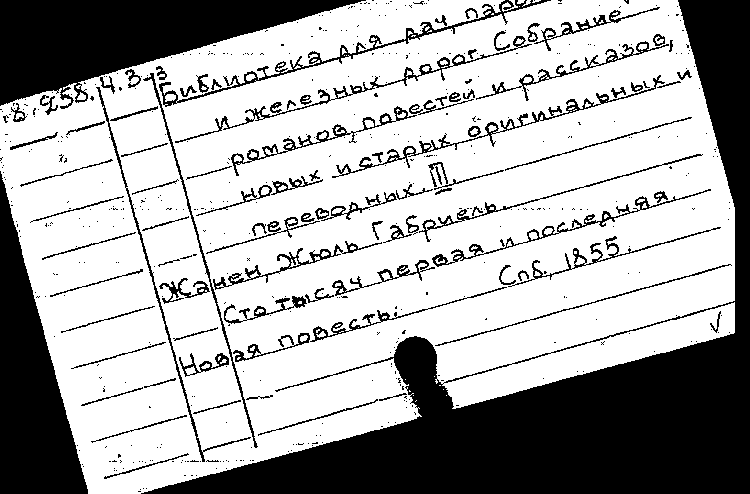 8.258.4.3
Библиотека для дач,
и железных дорог. Собрание
романов, повестей и рассказов,
новых и старых, оригинальных и
переводных. III.
Жанен, Жюль Габриель.
Сто тысяч первая и последняя.
Новая повесть. Спб, 1855.